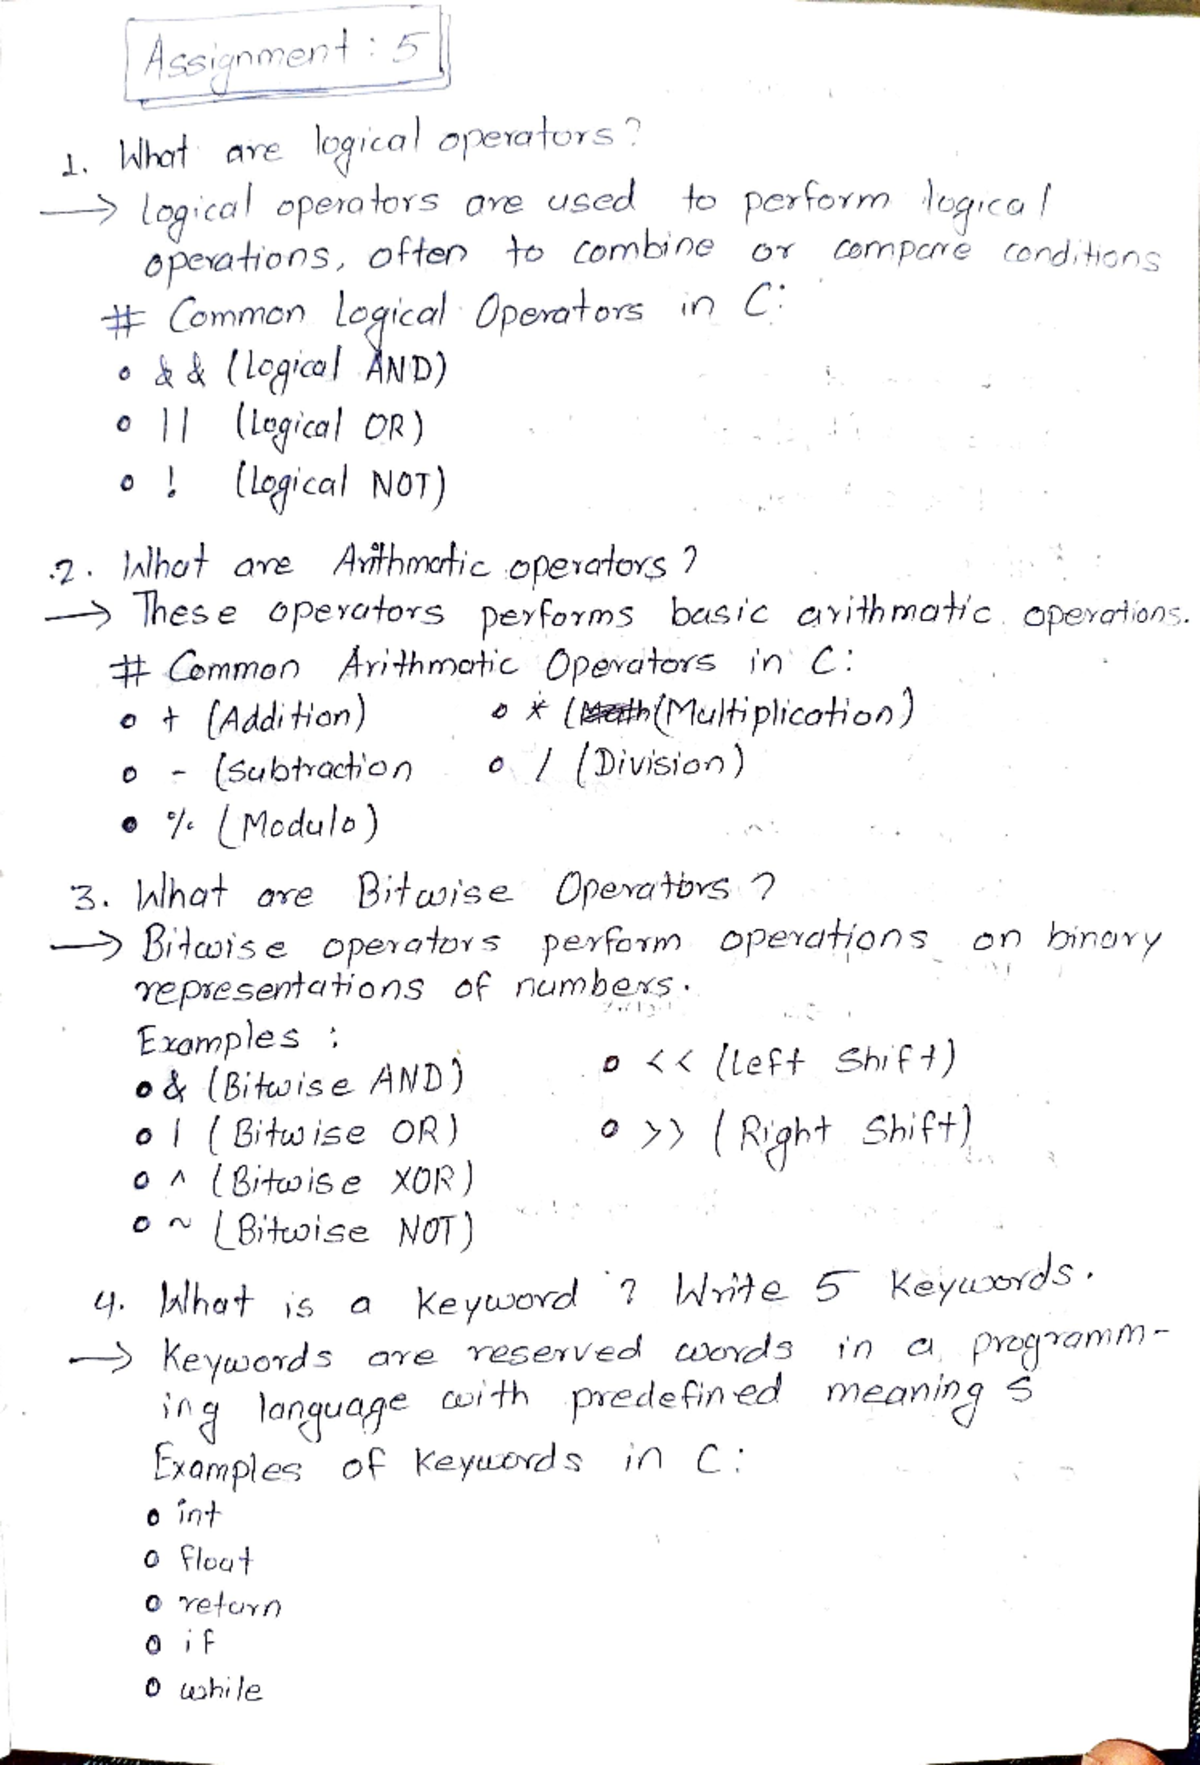 Assignment : 5
1. What are logical operators?
→ Logical operators are used to perform logical
operations, often to combine or compare conditions
# Common Logical Operators in C:
o && (Logical AND)
o || (Logical OR)
o ! (Logical NOT)
2. What are Arithmatic operators?
→ These operators performs basic arithmatic operations.
# Common Arithmatic Operators in C:
o + (Addition) o * ((Multiplication)
o - (Subtraction o / (Division)
• % (Modulo)
3. What are Bitwise Operators?
→ Bitwise operators perform operations on binary
representations of numbers.
Examples :
o & (Bitwise AND) o << (Left Shift)
o | (Bitwise OR) o >> (Right Shift)
o ^ (Bitwise XOR)
o ~ (Bitwise NOT)
4. What is a keyword ? Write 5 keywords.
→ Keywords are reserved words in a programm-
ing language with predefined meanings
Examples of keywords in C:
o int
o float
o return
o if
o while